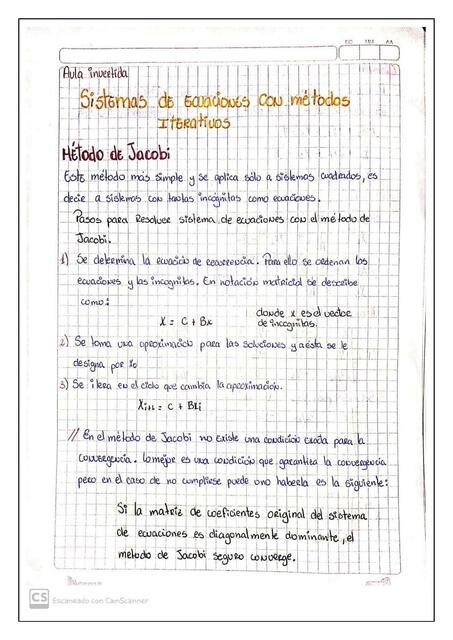 Aula invertida
Sistemas de ecuaciones con métodos
Iterativos
Método de Jacobi
Este método más simple y se aplica sólo a sistemas cuadrados, es
decir a sistemas con tantas incógnitas como ecuaciones.
Pasos para Resolver sistema de ecuaciones con el método de
Jacobi.
1) Se determina la ecuación de recurrencia. Para ello se ordenan las
ecuaciones y las incognitas. En notación matricial se describe
como:
X = C + Bx
donde x es el vector
de incognitas.
2) Se toma una aproximación para las soluciones y a ésta se le
designa por X₀
3) Se itera en el ciclo que cambia la aproximación.
Xᵢ₊₁ = C + BXᵢ
// En el método de Jacobi no existe una condición exacta para la
convergencia. Lo mejor es una condición que garantiza la convergencia
pero en el caso de no cumplirse puede o no haberla es la siguiente:
Si la matriz de coeficientes original del sistema
de ecuaciones es diagonalmente dominante, el
método de Jacobi seguro converge.
CS Escaneado con CamScanner